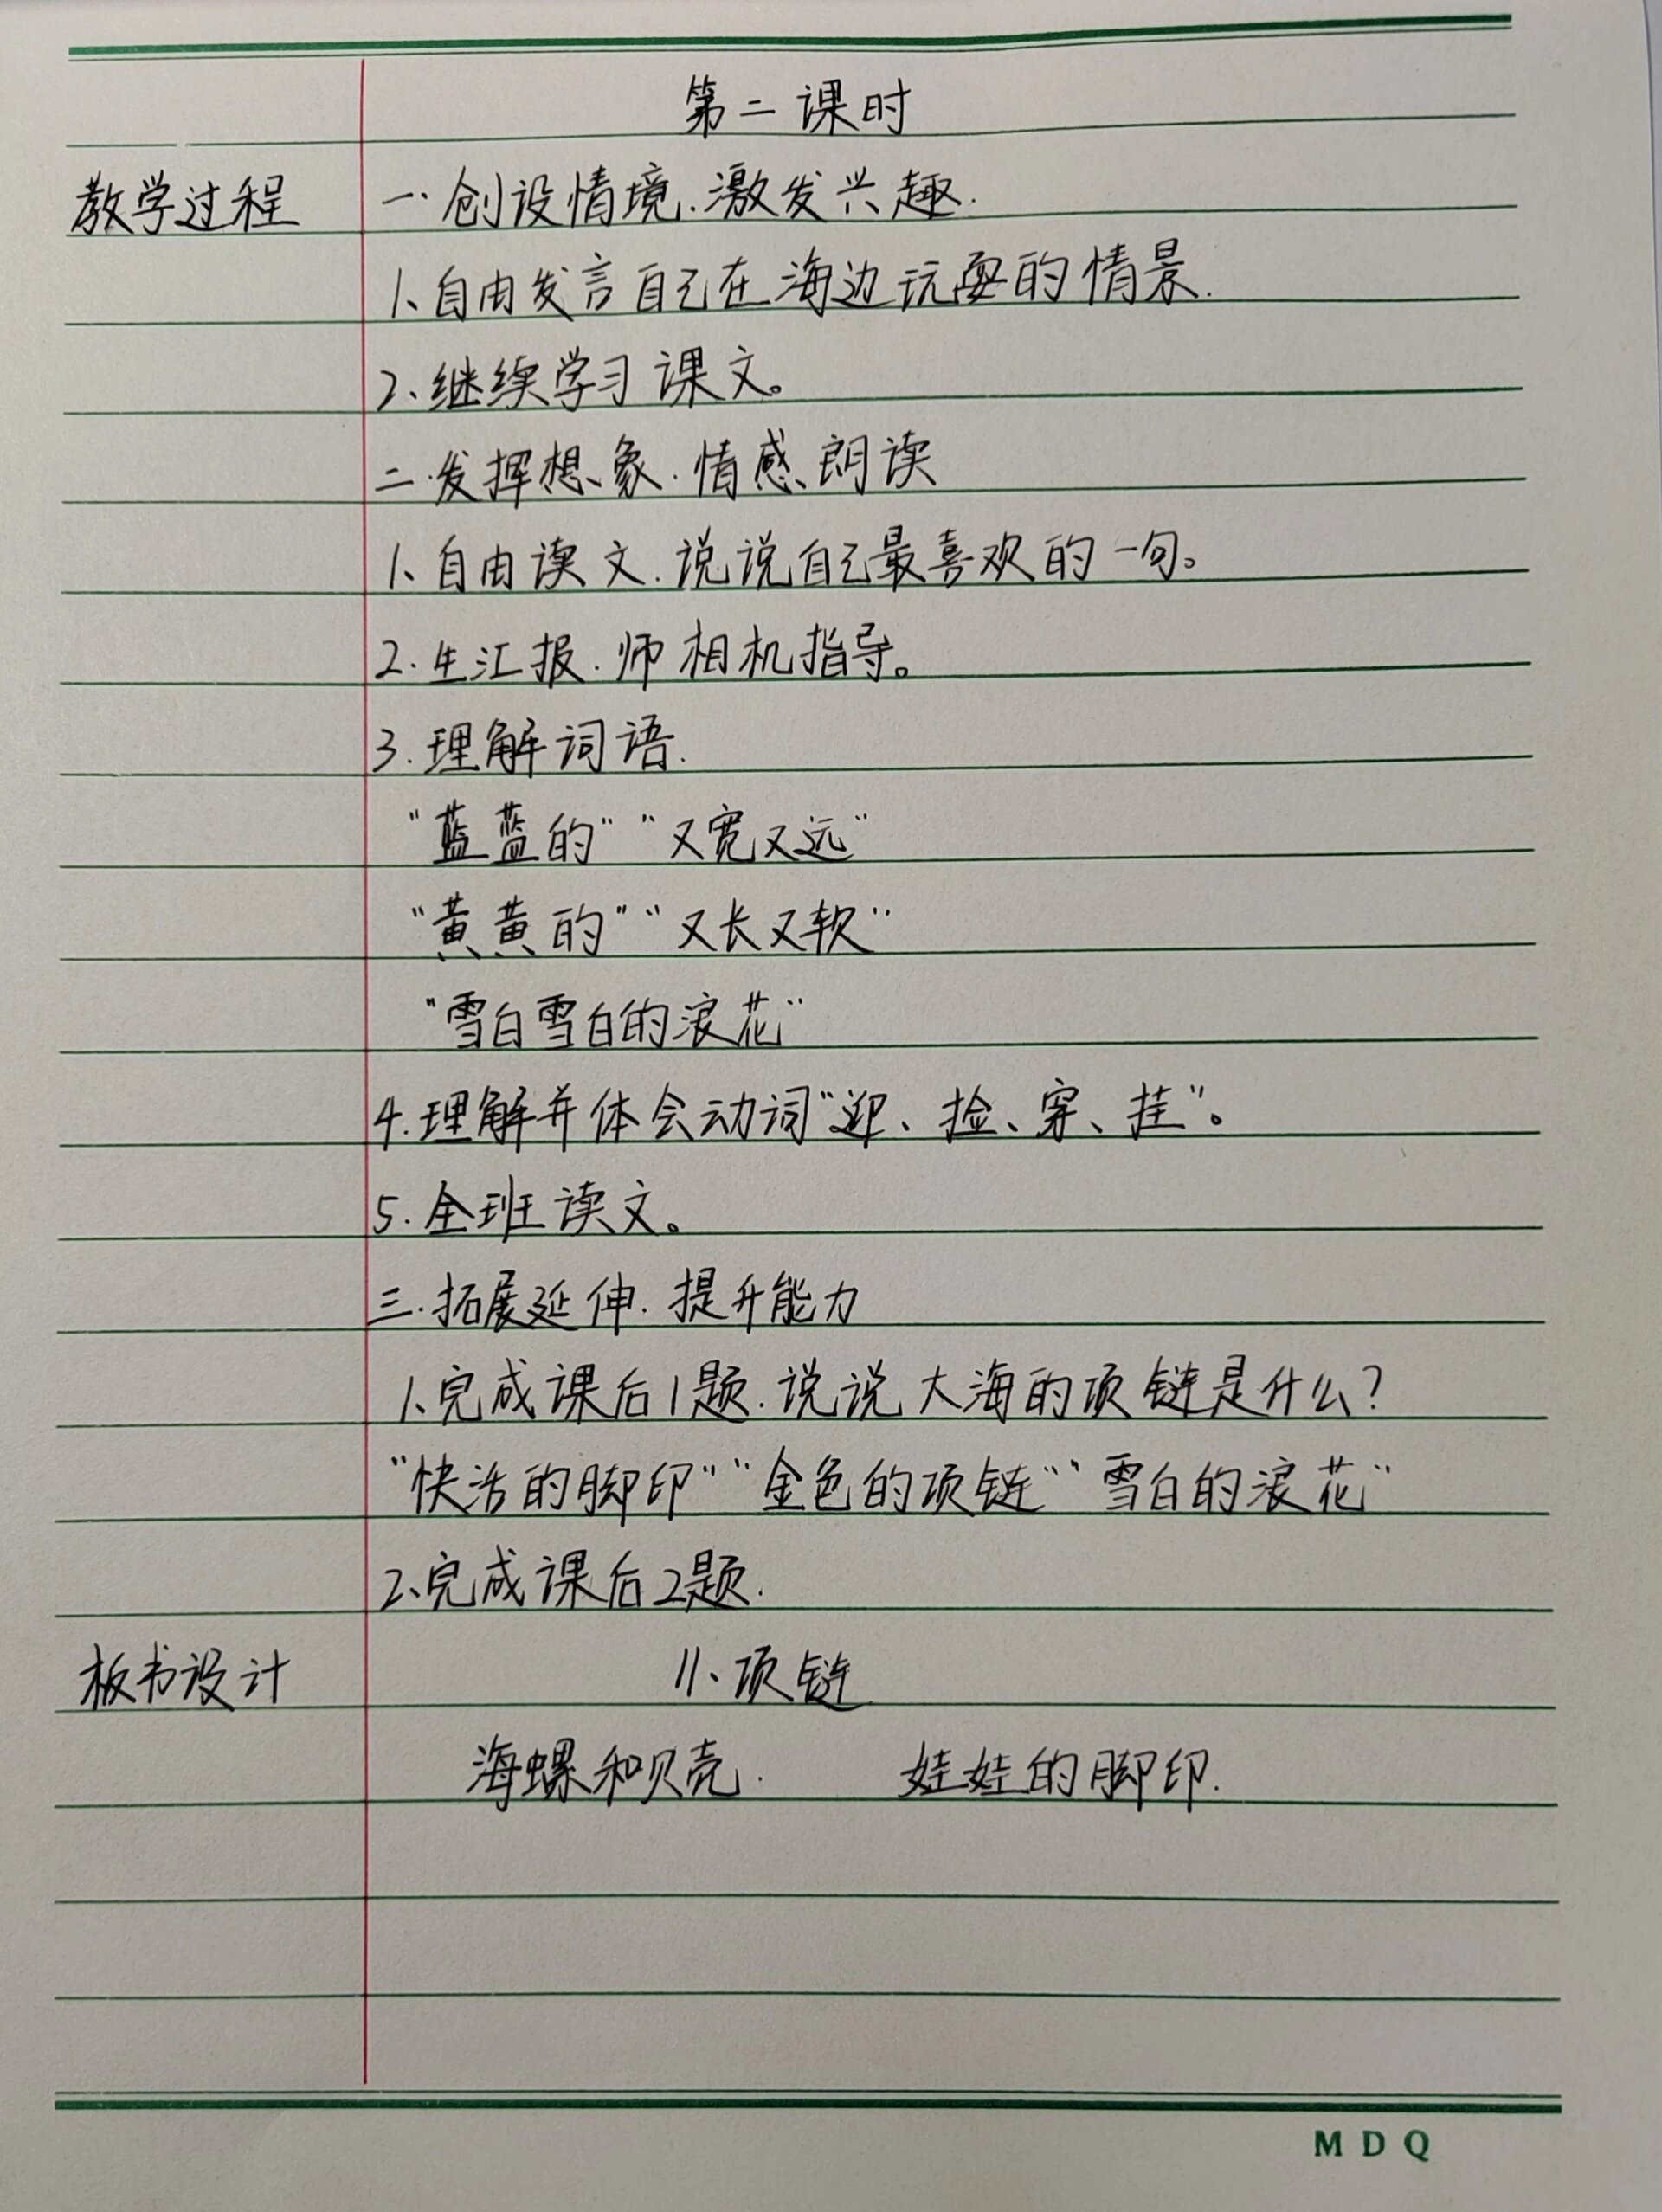 第二课时
教学过程 一.创设情境.激发兴趣.
1、自由发言自己在海边玩耍的情景.
2、继续学习课文。
二.发挥想象.情感朗读
1、自由读文.说说自己最喜欢的一句。
2.生汇报.师相机指导。
3.理解词语.
"蓝蓝的""又宽又远"
"黄黄的""又长又软"
"雪白雪白的浪花"
4.理解并体会动词"迎、捡、穿、挂"。
5.全班读文。
三.拓展延伸.提升能力
1、完成课后1题.说说大海的项链是什么?
"快活的脚印""金色的项链""雪白的浪花"
2、完成课后2题.
板书设计 11、项链
海螺和贝壳. 娃娃的脚印.
MDQ